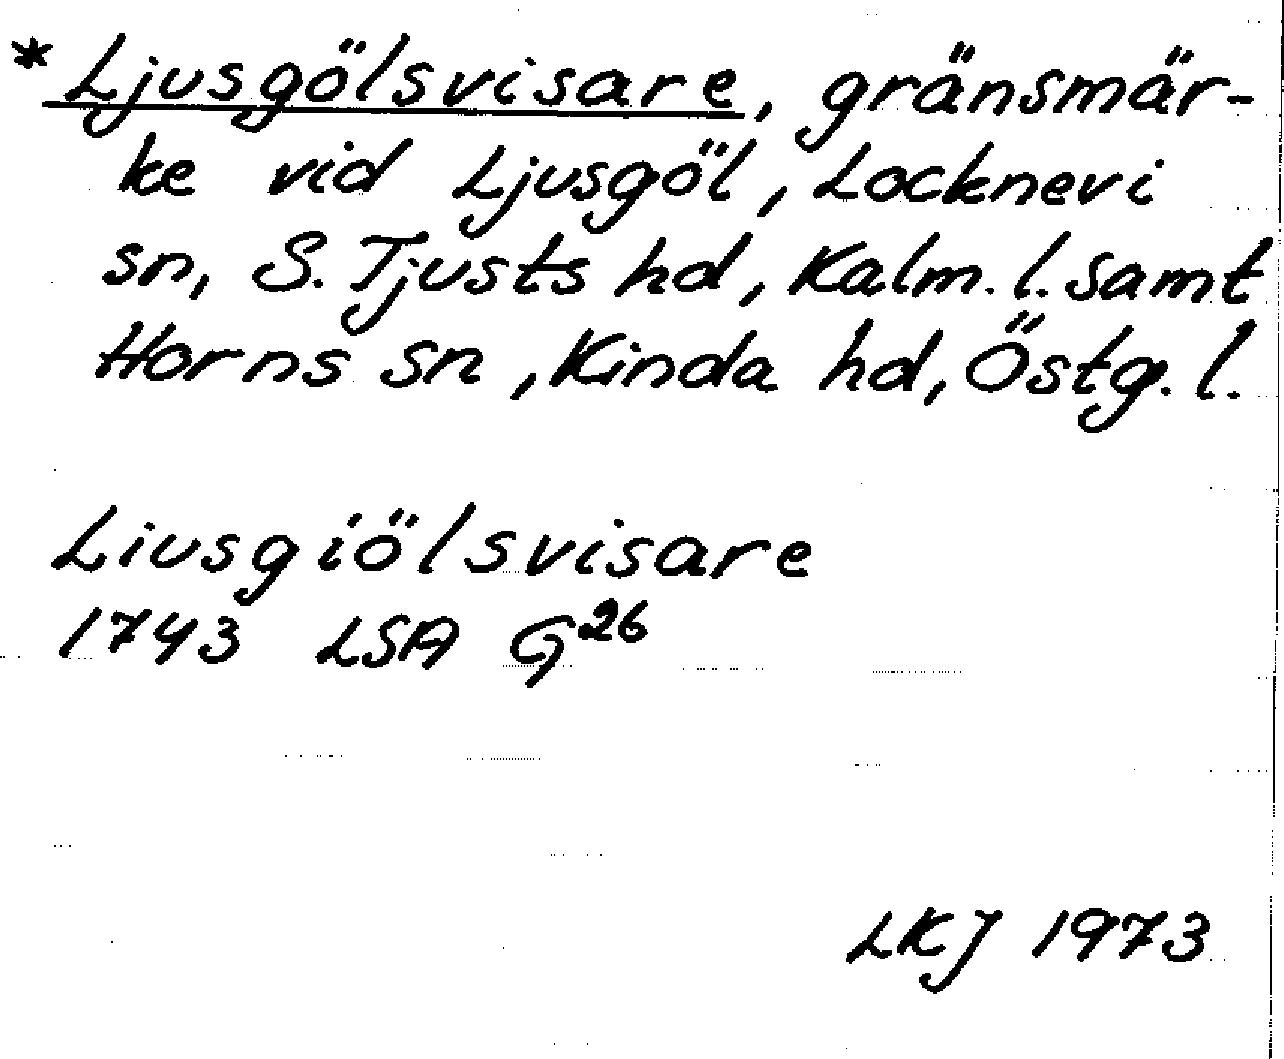 * Ljusgölsvisare, gränsmär-
ke vid Ljusgöl, Locknevi
sn, S. Tjusts hd, Kalm. l. samt
Horns sn, Kinda hd, Östg. l.
Liusgiölsvisare
1743 LSA G²⁶
LKJ 1973